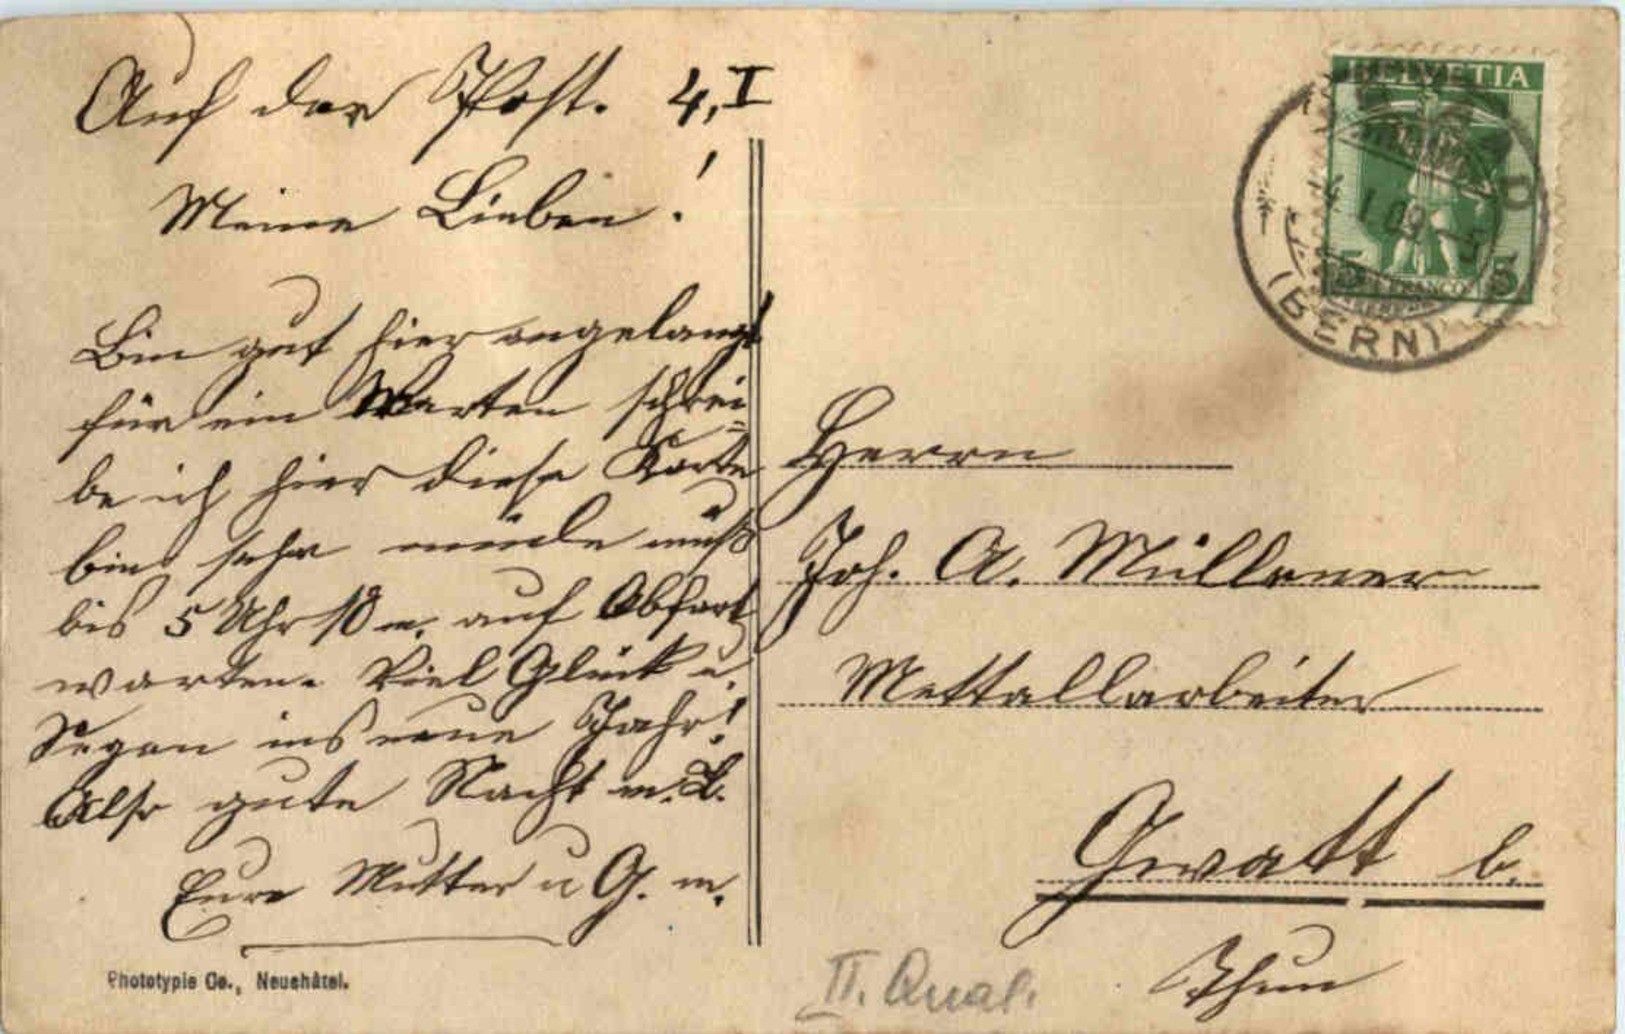 Auf der Post. 4. I
Meine Lieben!
Bin gut hier angelangt
für ein Warten schrei=
be ich hier diese Karte
bin sehr müde muß
bis 5 Uhr 18 m. auf Abfart
warten. Viel Glück u.
Segen ins neue Jahr!
Also gute Nacht m. L.
Eure Mutter u G. m.
Phototypie Co., Neuchâtel.
HELVETIA
I. 09
5
5
FRANCO
(BERN)
Herrn
Joh. A. Müllener
Mettallarbeiter
Gwatt b.
Thun
II. Qual.